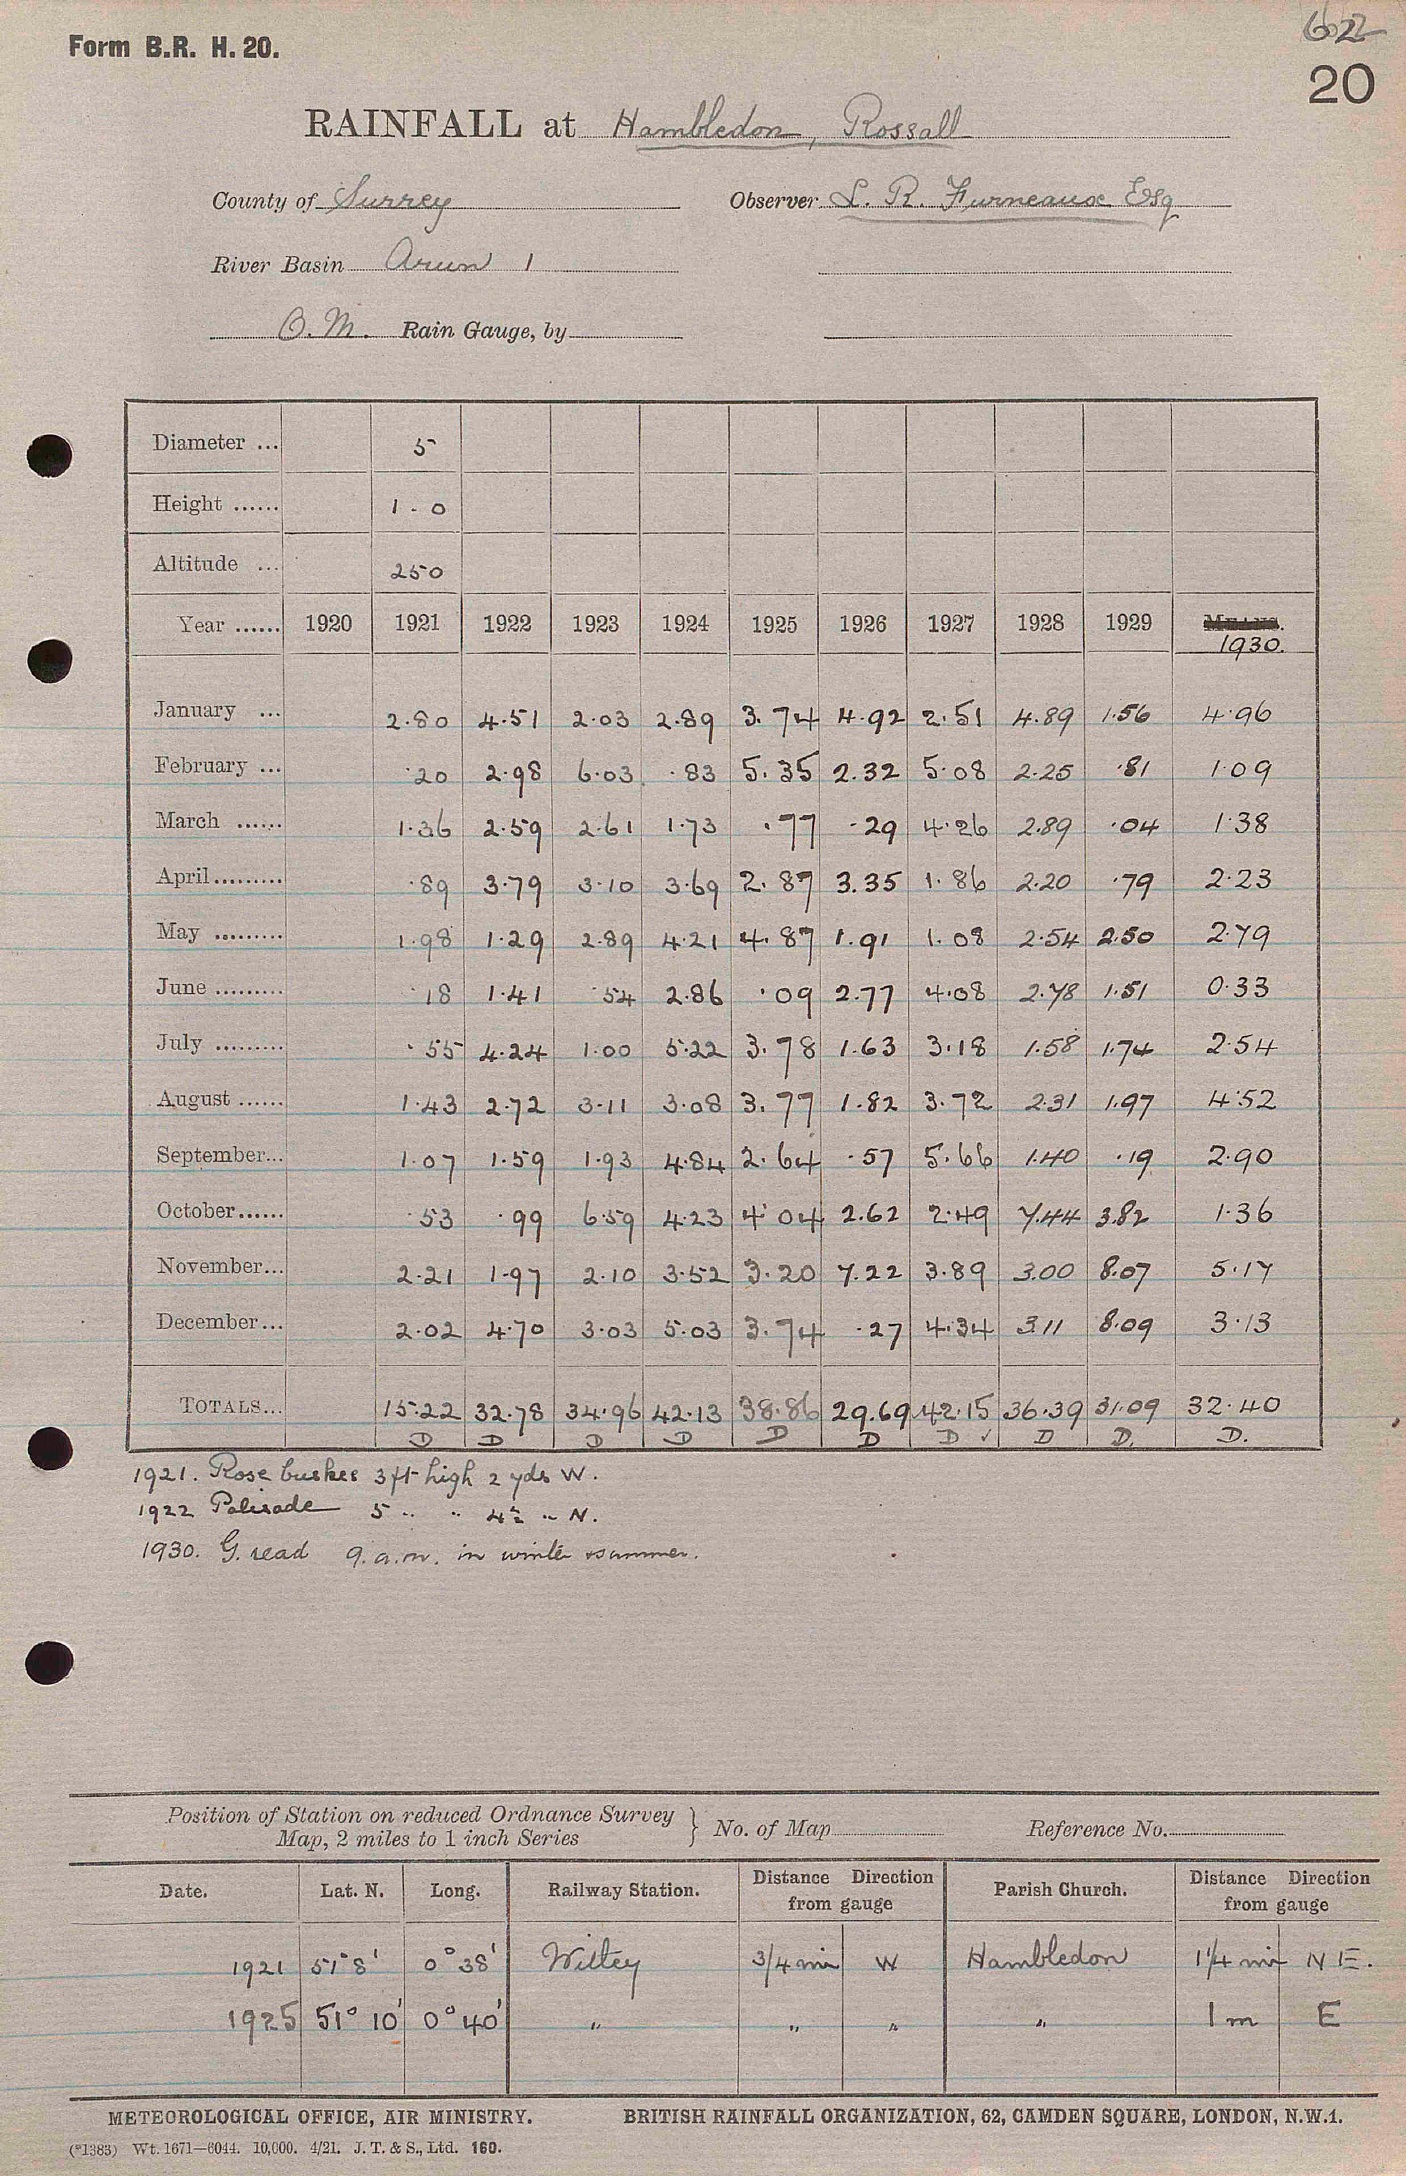 622
Form B.R. H. 20.
20
RAINFALL at Hambledon, Rossall
County of Surrey Observer L. R. Furneaux Esq
River Basin Arun 1
O.M. Rain Gauge, by
Diameter ... 5
Height ...... 1 - 0
Altitude ... 250
Year ...... 1920 1921 1922 1923 1924 1925 1926 1927 1928 1929 MEANS.
1930.
January ... 2.80 4.51 2.03 2.89 3.74 4.92 2.51 4.89 1.56 4.96
February ... .20 2.98 6.03 .83 5.35 2.32 5.08 2.25 .81 1.09
March ...... 1.36 2.59 2.61 1.73 .77 .29 4.26 2.89 .04 1.38
April......... .89 3.79 3.10 3.69 2.87 3.35 1.86 2.20 .79 2.23
May ......... 1.98 1.29 2.89 4.21 4.87 1.91 1.08 2.54 2.50 2.79
June ......... .18 1.41 .54 2.86 .09 2.77 4.08 2.78 1.51 0.33
July ......... .55 4.24 1.00 5.22 3.78 1.63 3.18 1.58 1.74 2.54
August ...... 1.43 2.72 3.11 3.08 3.77 1.82 3.72 2.31 1.97 4.52
September... 1.07 1.59 1.93 4.84 2.64 .57 5.66 1.40 .19 2.90
October...... .53 .99 6.59 4.23 4.04 2.62 2.49 7.44 3.82 1.36
November... 2.21 1.97 2.10 3.52 3.20 7.22 3.89 3.00 8.07 5.17
December... 2.02 4.70 3.03 5.03 3.74 .27 4.34 3.11 8.09 3.13
TOTALS... 15.22 32.78 34.96 42.13 38.86 29.69 42.15 36.39 31.09 32.40
D D D D D D D ✓ D D. D.
1921. Rose bushes 3 ft high 2 yds W.
1922 Palisade 5 " " 4½ " N.
1930. G. read 9.a.m. in winter & summer.
Position of Station on reduced Ordnance Survey
Map, 2 miles to 1 inch Series } No. of Map Reference No.
Date. Lat. N. Long. Railway Station. Distance Direction from gauge Parish Church. Distance Direction from gauge
1921 51° 8' 0° 38' Witley 3/4 mi W Hambledon 1¼ mi N E.
1925 51° 10' 0° 40' " " " " 1 m E
METEOROLOGICAL OFFICE, AIR MINISTRY. BRITISH RAINFALL ORGANIZATION, 62, CAMDEN SQUARE, LONDON, N.W.1.
(*1383) Wt. 1671—6044. 10,000. 4/21. J. T. & S., Ltd. 160.